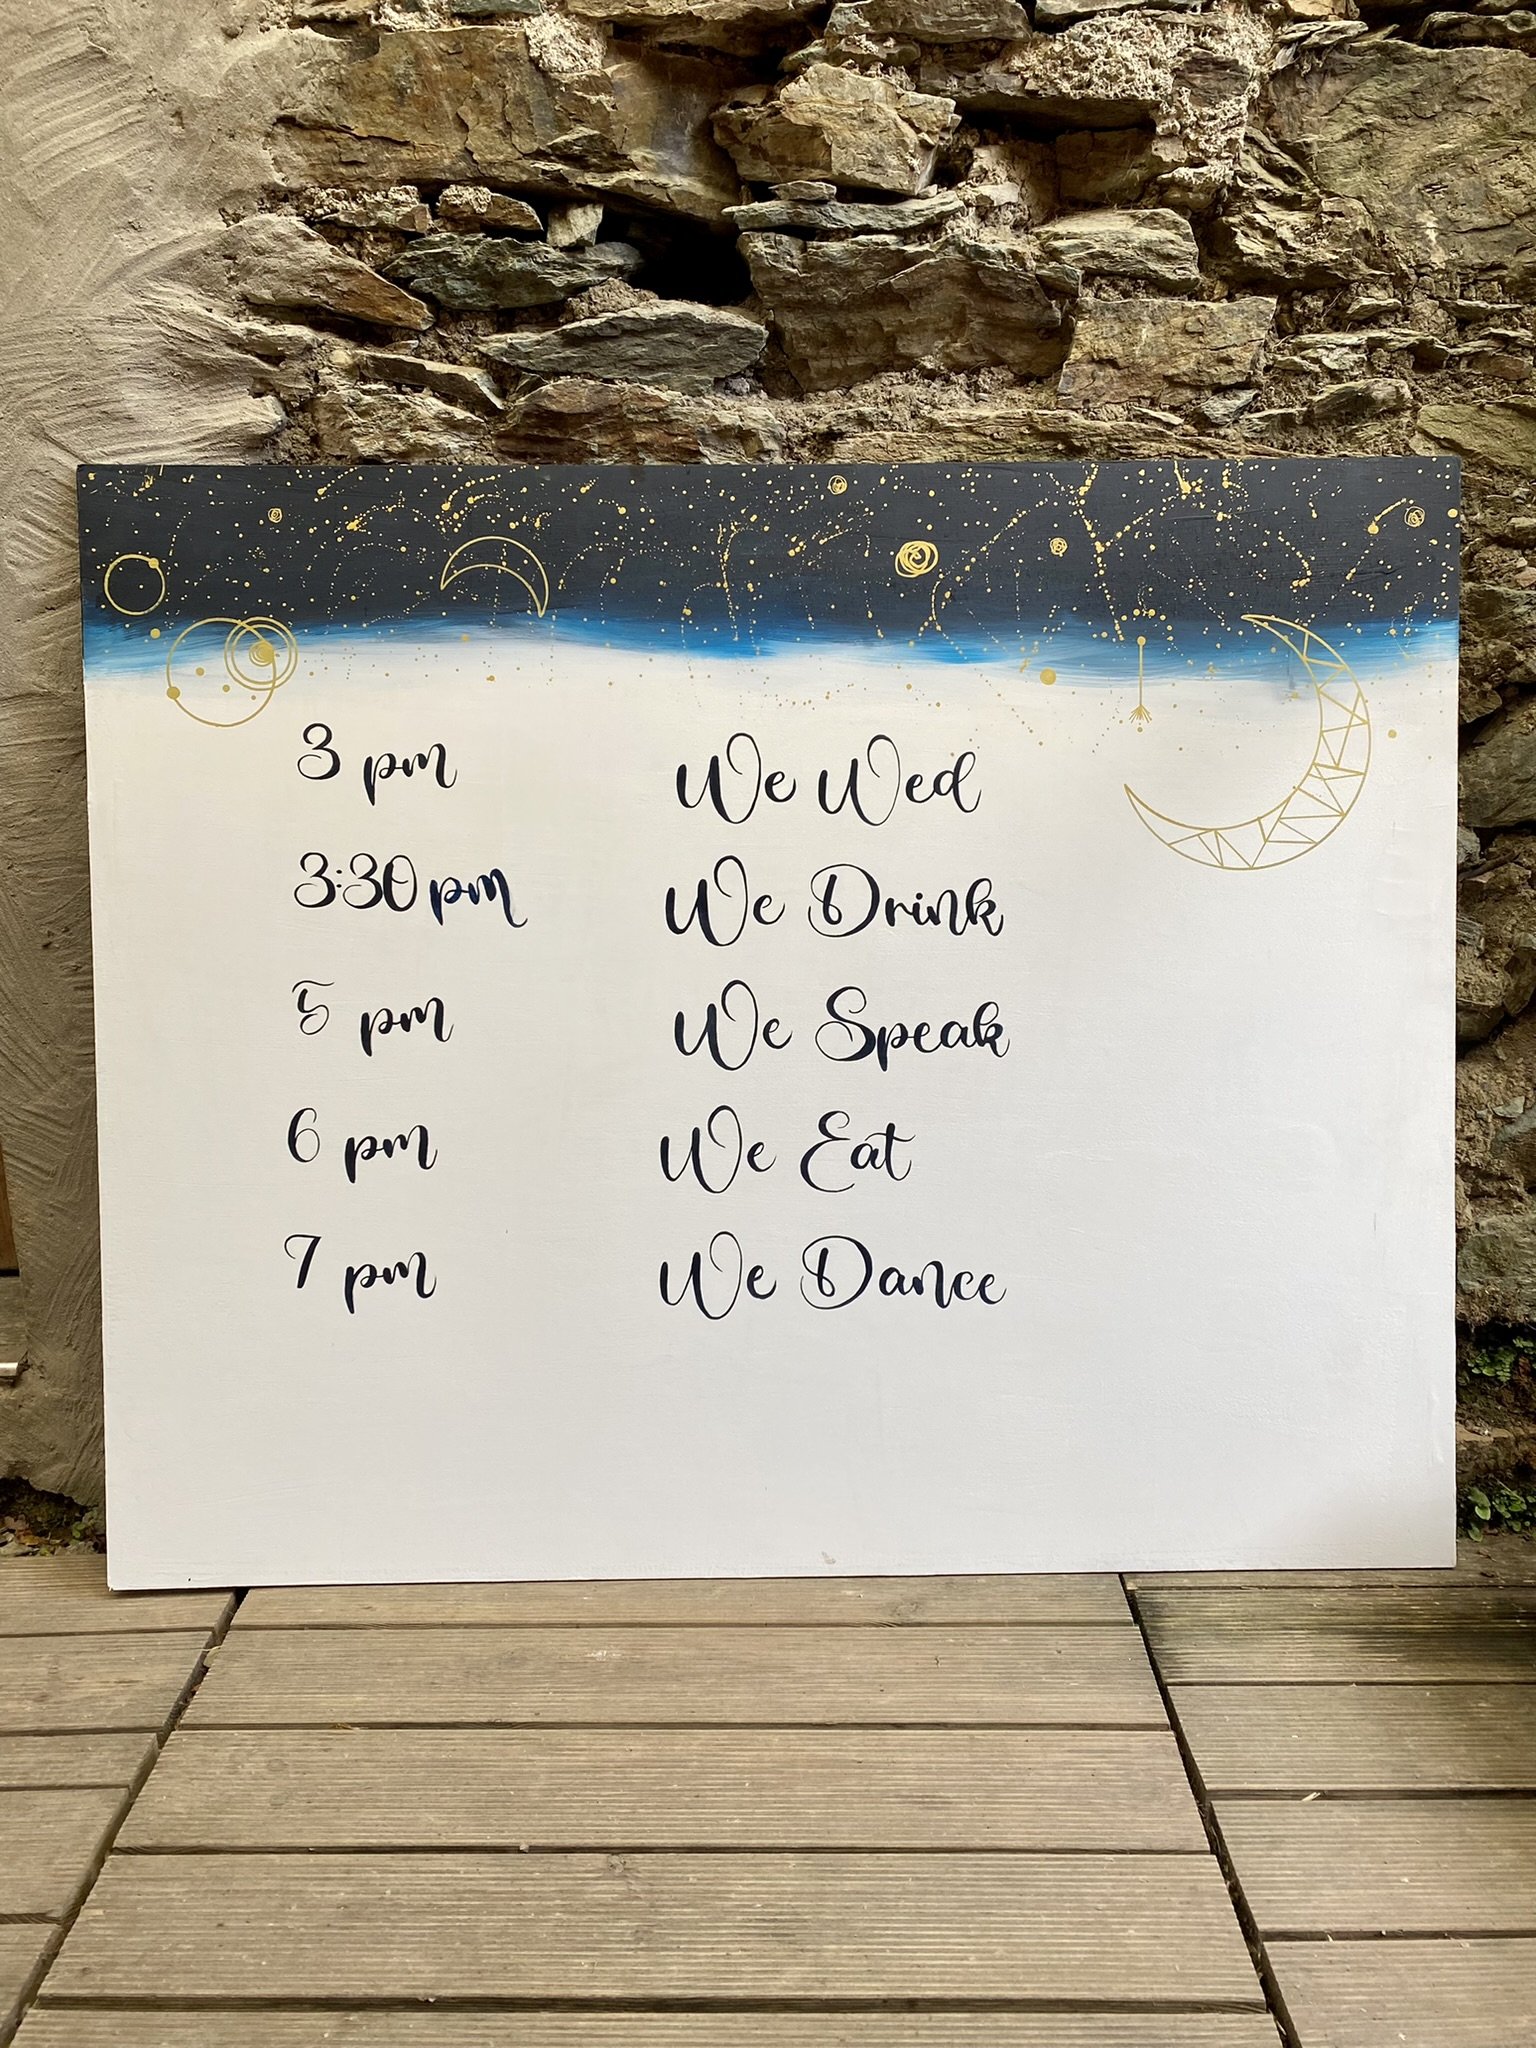 3 pm We Wed
3:30 pm We Drink
5 pm We Speak
6 pm We Eat
7 pm We Dance